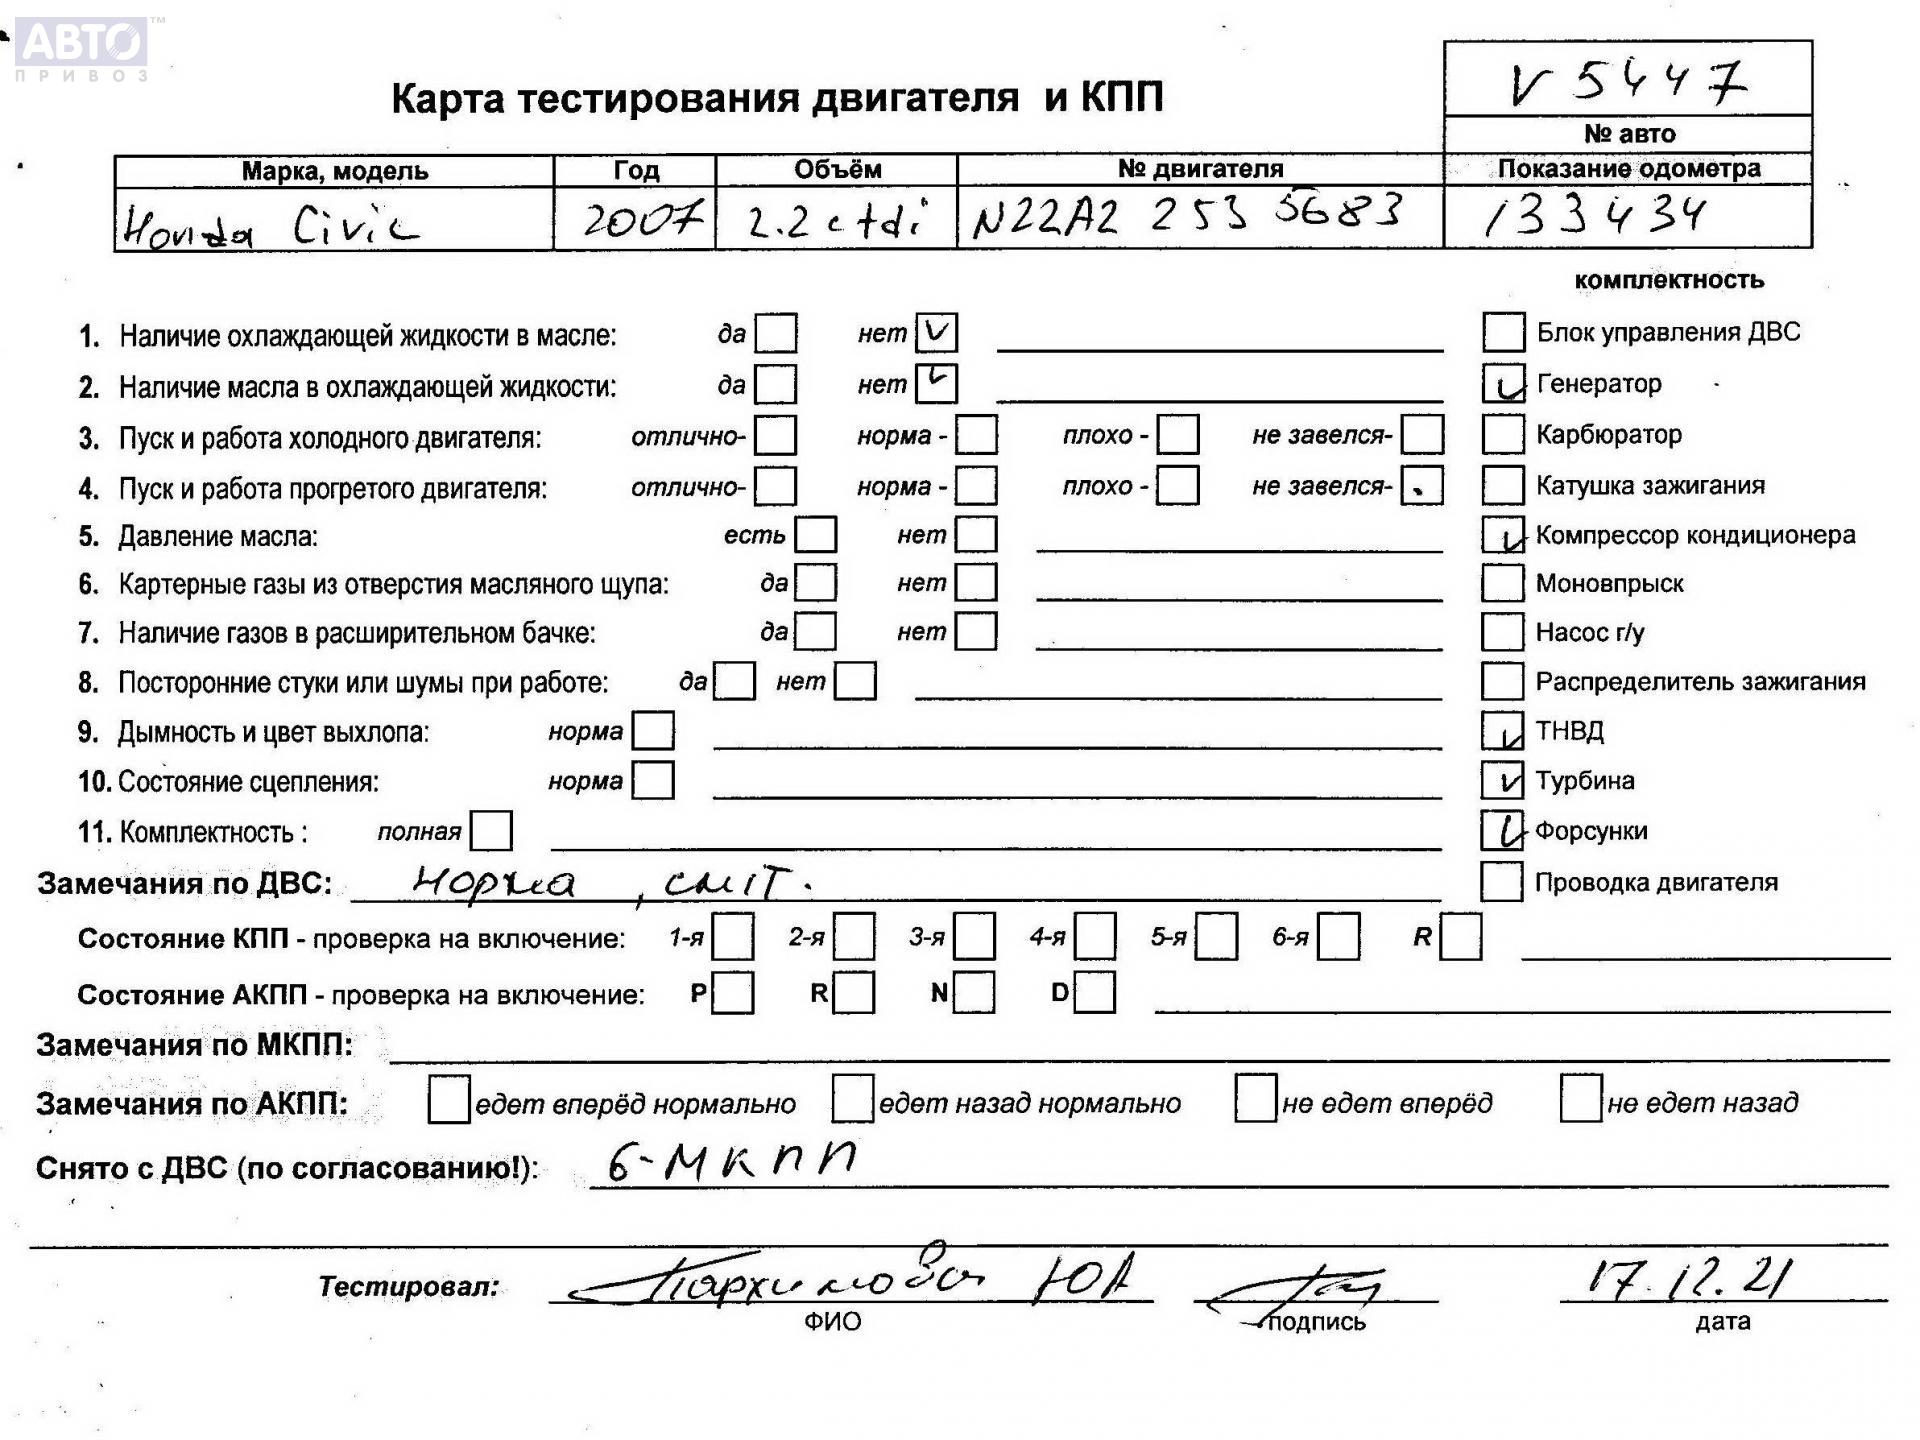 АВТО™
ПРИВОЗ
V 5447
Карта тестирования двигателя и КПП
№ авто
Марка, модель Год Объём № двигателя Показание одометра
Honda Civic 2007 2.2 ctdi N22A2 253 5683 133434
комплектность
1. Наличие охлаждающей жидкости в масле: да нет Блок управления ДВС
2. Наличие масла в охлаждающей жидкости: да нет Генератор
3. Пуск и работа холодного двигателя: отлично- норма - плохо - не завелся- Карбюратор
4. Пуск и работа прогретого двигателя: отлично- норма - плохо - не завелся- Катушка зажигания
5. Давление масла: есть нет Компрессор кондиционера
6. Картерные газы из отверстия масляного щупа: да нет Моновпрыск
7. Наличие газов в расширительном бачке: да нет Насос г/у
8. Посторонние стуки или шумы при работе: да нет Распределитель зажигания
9. Дымность и цвет выхлопа: норма ТНВД
10. Состояние сцепления: норма Турбина
11. Комплектность : полная Форсунки
Замечания по ДВС: норма, Проводка двигателя
Состояние КПП - проверка на включение: 1-я 2-я 3-я 4-я 5-я 6-я R
Состояние АКПП - проверка на включение: P R N D
Замечания по МКПП:
Замечания по АКПП: едет вперёд нормально едет назад нормально не едет вперёд не едет назад
Снято с ДВС (по согласованию!): 6-МКПП
Тестировал: ЮА 17.12.21
ФИО подпись дата